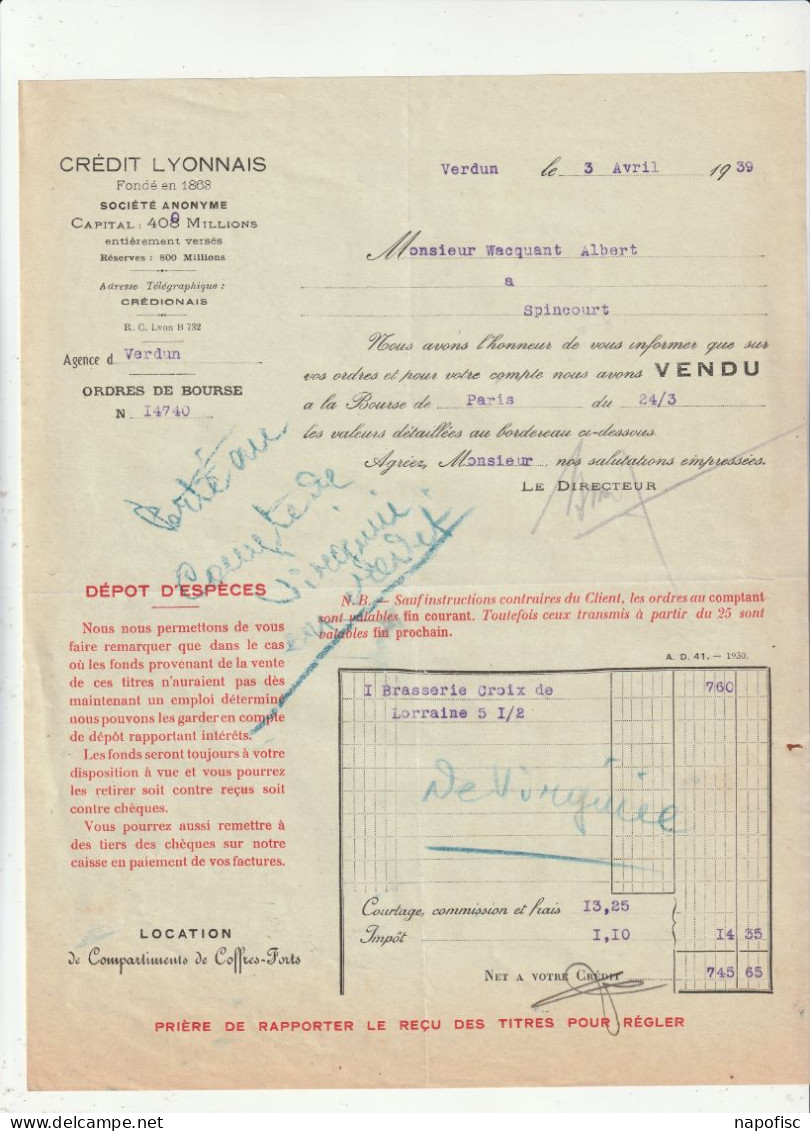 CRÉDIT LYONNAIS
Fondé en 1863
SOCIÉTÉ ANONYME
CAPITAL : 400 MILLIONS
entièrement versés
Réserves : 800 Millions
Adresse Télégraphique :
CRÉDIONAIS
R. C. Lyon B 732
Agence d Verdun
ORDRES DE BOURSE
N I4740
Verdun le 3 Avril 1939
Monsieur Wacquant Albert
a
Spincourt
Nous avons l'honneur de vous informer que sur
vos ordres et pour votre compte nous avons VENDU
a la Bourse de Paris du 24/3
les valeurs détaillées au bordereau ci-dessous.
Agréez, Monsieur nos salutations empressées.
LE DIRECTEUR
Porté au
Compte de
Virginie
DÉPOT D'ESPÈCES
Nous nous permettons de vous
faire remarquer que dans le cas
où les fonds provenant de la vente
de ces titres n'auraient pas dès
maintenant un emploi déterminé
nous pouvons les garder en compte
de dépôt rapportant intérêts.
Les fonds seront toujours à votre
disposition à vue et vous pourrez
les retirer soit contre reçus soit
contre chèques.
Vous pourrez aussi remettre à
des tiers des chèques sur notre
caisse en paiement de vos factures.
LOCATION
de Compartiments de Coffres-Forts
N.B. — Sauf instructions contraires du Client, les ordres au comptant
sont valables fin courant. Toutefois ceux transmis à partir du 25 sont
valables fin prochain.
A. D. 41. — 1930.
I Brasserie Croix de 760
Lorraine 5 I/2
de Virginie
Courtage, commission et frais I3,25
Impôt I,I0 I4 35
NET A VOTRE CRÉDIT 745 65
PRIÈRE DE RAPPORTER LE REÇU DES TITRES POUR RÉGLER
napofisc